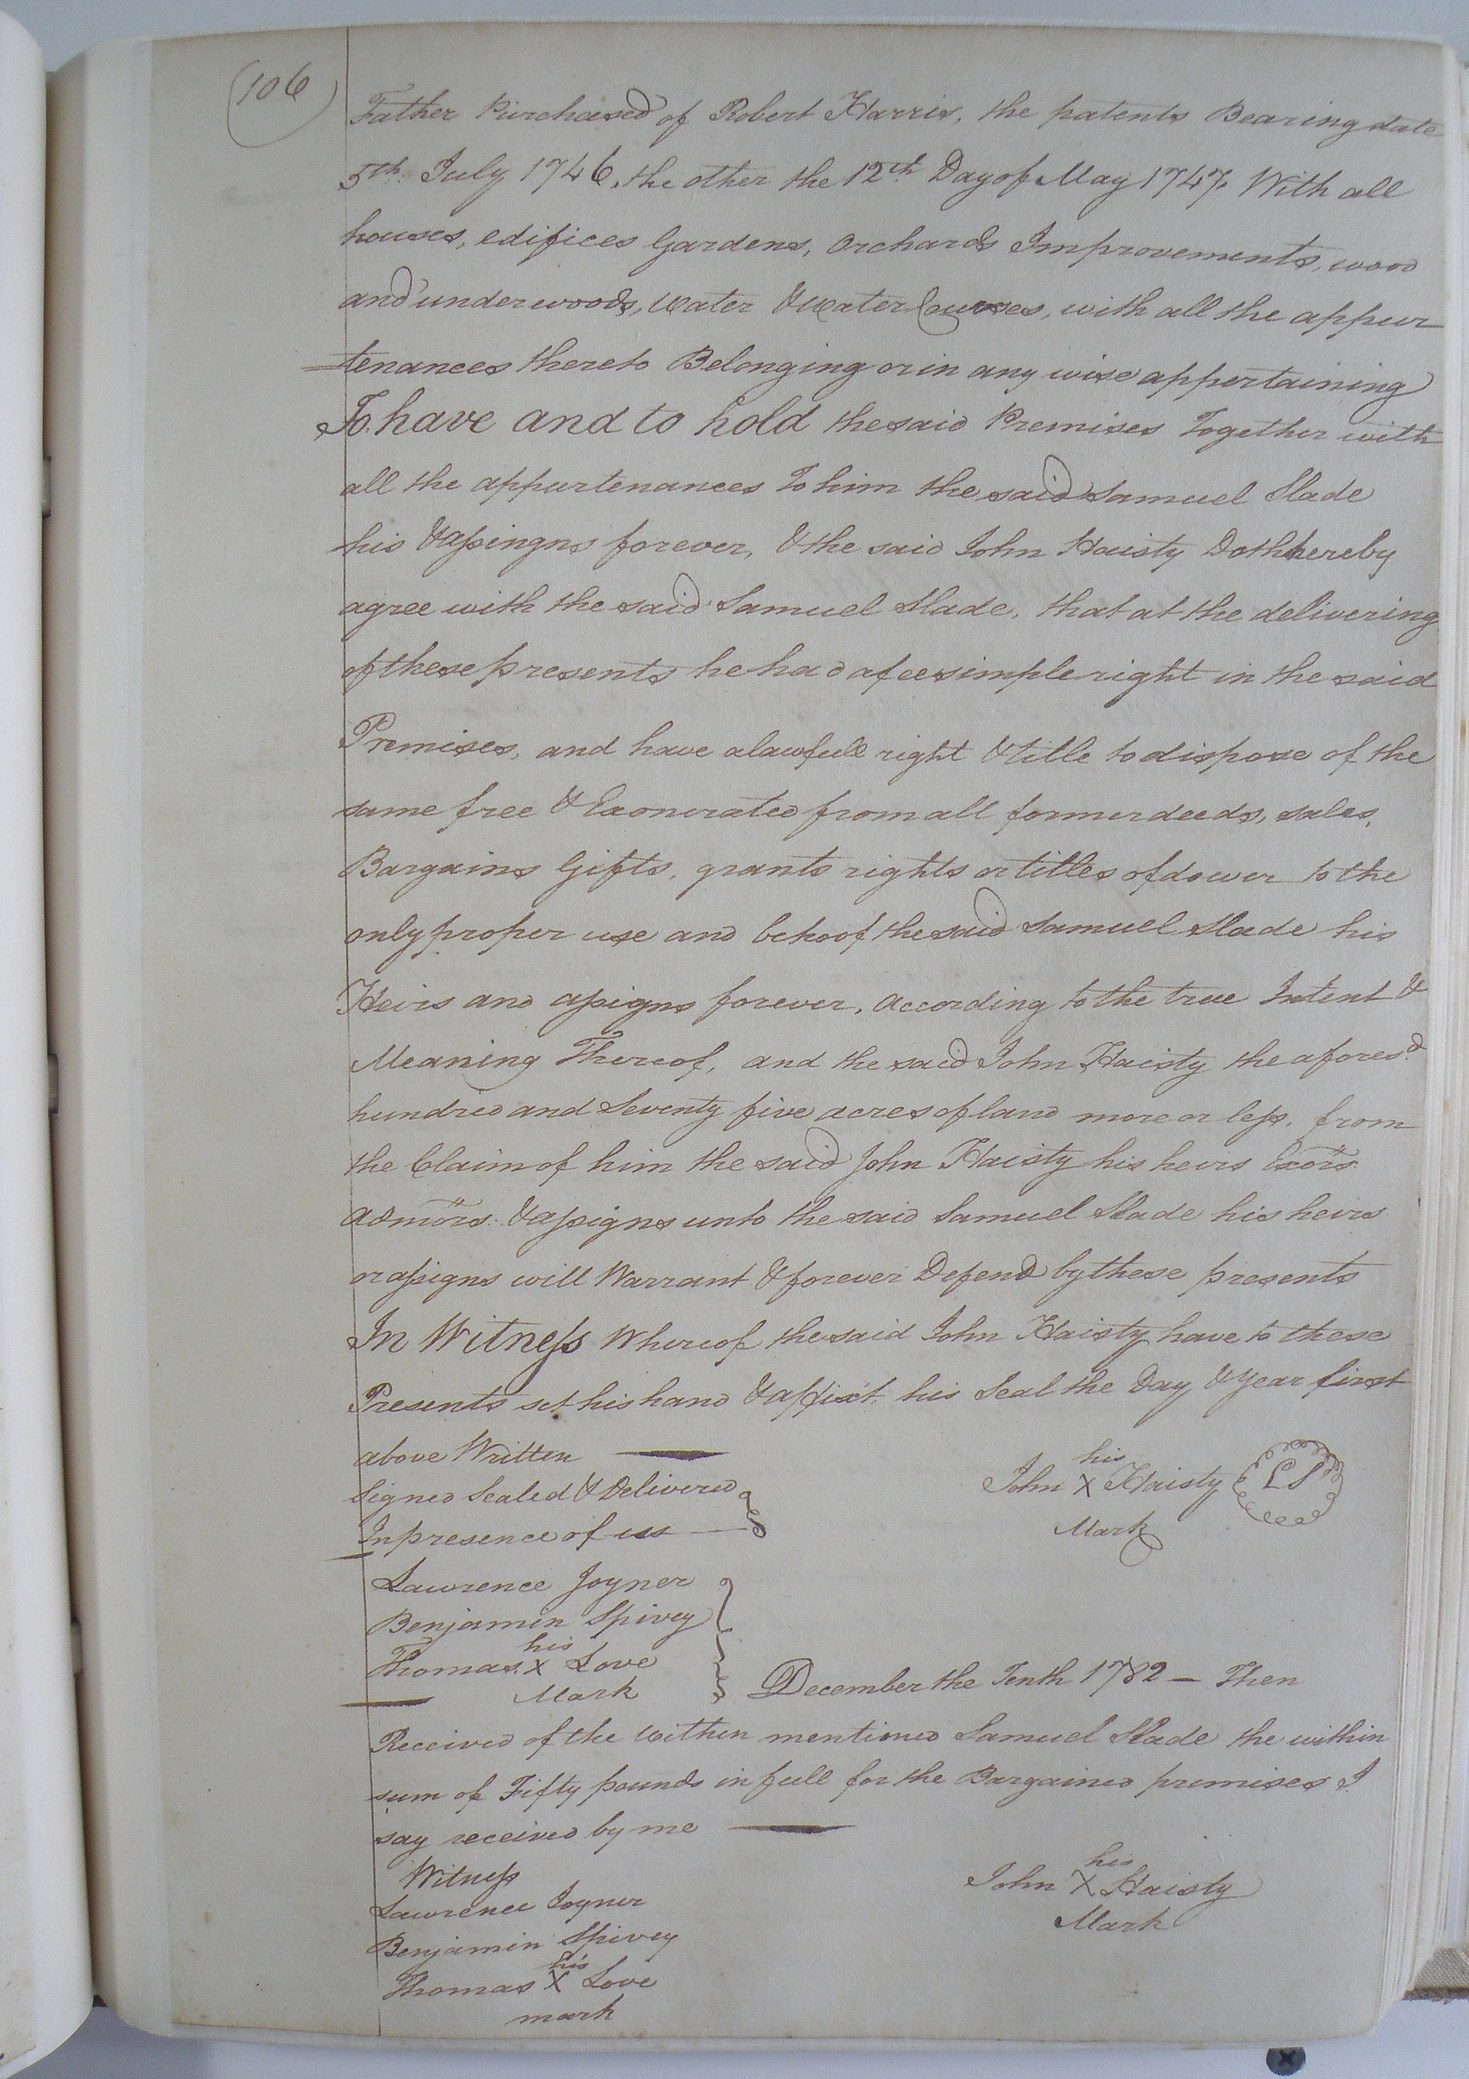 (106)
Father Purchased of Robert Harris, the patents Bearing date
5th: July 1746, the other the 12th Day of May 1747. With all
houses, edifices Gardens, Orchards Improvements, wood
and underwoods, Water & Water Courses, with all the appur
=tenances thereto Belonging or in any wise appertaining
To have and to hold the said Premises Together with
all the appurtenances To him the said Samuel Slade
his & assingns forever, & the said John Haisty Doth hereby
agree with the said Samuel Slade, that at the delivering
of these presents he had a fee simple right in the said
Premises, and have a lawfull right & title to dispose of the
same free & Exonerated from all former deeds, sales,
Bargains Gifts, grants rights or titles of dower to the
only proper use and behoof the said Samuel Slade his
Heirs and assigns forever, according to the true Intent &
Meaning Thereof, and the said John Haisty the afores.d
hundred and Seventy five acres of land more or less, from
the Claim of him the said John Haisty his heirs Exors.
admors: & assigns unto the said Samuel Slade his heirs
or assigns will Warrant & forever Defend by these presents
In Witness Whereof the said John Haisty have to these
Presents set his hand & affix't his Seal the Day & year first
above Written
Signed Sealed & Delivered
In presence of us
his
John X Haisty LS
Mark
Lawrence Joyner
Benjamin Spivey
his
Thomas X Love
Mark
December the Tenth 1782 — Then
Received of the within mentioned Samuel Slade the within
sum of Fifty pounds in full for the Bargained premises I
say received by me
his
John X Haisty
Mark
Witness
Lawrence Joyner
Benjamin Spivey
his
Thomas X Love
mark